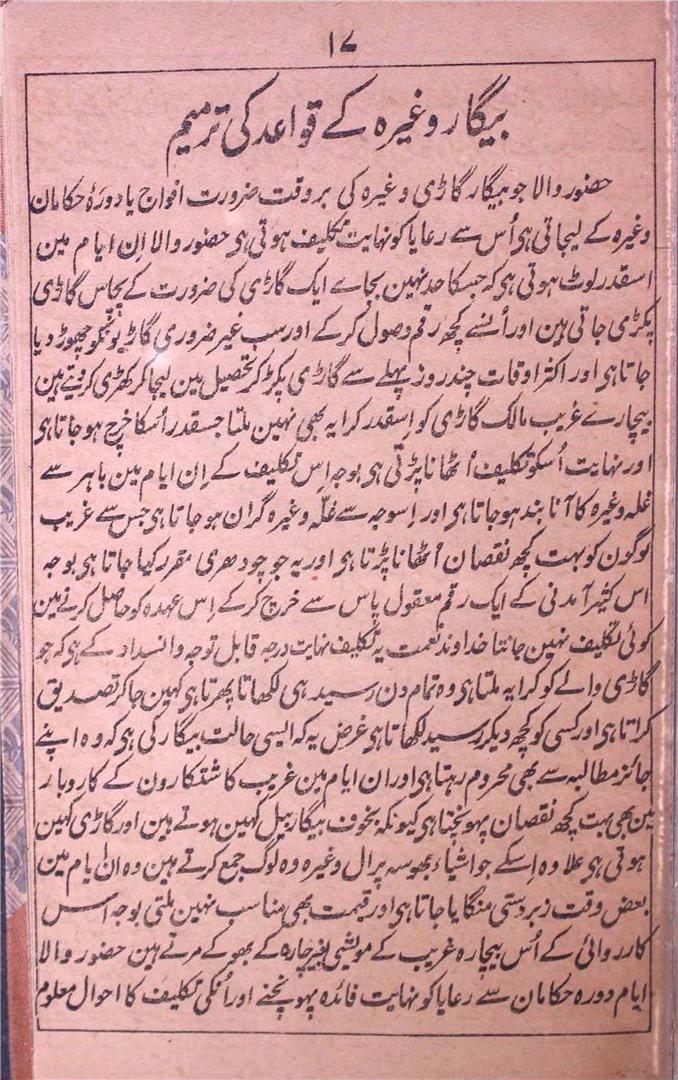 ۱۷
بیگار وغیرہ کے قواعد کی ترمیم
حضور والا جو بیگار گاڑی وغیرہ کی بروقت ضرورت افواج یا دورۂ حکامان
وغیرہ کے لیجاتی ہی اُس سے رعایا کو نہایت تکلیف ہوتی ہی حضور والا اِن ایام مین
اسقدر لوٹ ہوتی ہی کہ جسکا حد نہین بجاے ایک گاڑی کی ضرورت کے پچاس گاڑی
پکڑی جاتی ہین اور اُنسے کچھ رقم وصول کرکے اور سب غیر ضروری گاڑیونکو چھوڑ دیا
جاتا ہی اور اکثر اوقات چند روز پہلے سے گاڑی پکڑ کر تحصیل مین لیجا کر کھڑی کردیتے ہین
بیچارے غریب مالک گاڑی کو اسقدر کرایہ بھی نہین ملتا جسقدر اُسکا خرچ ہو جاتا ہی
اور نہایت اُسکو تکلیف اُٹھانا پڑتی ہی بوجہ اِس تکلیف کے اِن ایام مین باہر سے
غلہ وغیرہ کا آنا بند ہو جاتا ہی اور اِسوجہ سے غلّہ وغیرہ گران ہو جاتا ہی جس سے غریب
لوگون کو بہت کچھ نقصان اُٹھانا پڑتا ہی اور یہ جو چودھری مقرر کیا جاتا ہی بوجہ
اس کثیر آمدنی کے ایک رقم معقول پاس سے خرچ کرکے اِس عہدہ کو حاصل کرتے ہین
کوئی تکلیف نہین جانتا خداوند نعمت یہ تکلیف نہایت درجہ قابل توجہ و انسداد کے ہی کہ جو
گاڑی والے کو کرایہ ملتا ہی وہ تمام دن رسید ہی لکھاتا پھرتا ہی کہین جا کر تصدیق
کراتا ہی اور کسی کو کچھ دیکر رسید لکھاتا ہی غرض یہ کہ ایسی حالت بیگار کی ہی کہ وہ اپنے
جائز مطالبہ سے بھی محروم رہتا ہی اور ان ایام مین غریب کاشتکارون کے کاروبار
مین بھی بہت کچھ نقصان پہونچتا ہی کیونکہ بخوف بیگار بیل کہین ہوتے ہین اور گاڑی کہین
ہوتی ہی علاوہ اِسکے جو اشیاء بھوسہ پرال وغیرہ وہ لوگ جمع کرتے ہین وہ ان ایام مین
بعض وقت زبردستی منگایا جاتا ہی اور قیمت بھی مناسب نہین ملتی بوجہ اس
کارروائی کے اُس بیچارہ غریب کے مویشی بغیر چارہ کے بھوکے مرتے ہین حضور والا
ایام دورہ حکامان سے رعایا کو نہایت فائدہ پہونچنے اور اُنکی تکلیف کا احوال معلوم